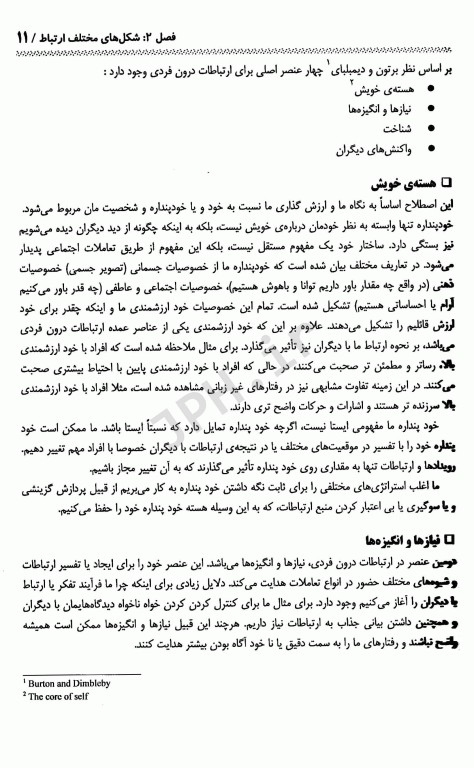 فصل ۲: شکل‌های مختلف ارتباط / ۱۱
بر اساس نظر برتون و دیمبلبای۱ چهار عنصر اصلی برای ارتباطات درون فردی وجود دارد :
● هسته‌ی خویش۲
● نیازها و انگیزه‌ها
● شناخت
● واکنش‌های دیگران
❑ هسته‌ی خویش
این اصطلاح اساساً به نگاه ما و ارزش گذاری ما نسبت به خود و یا خودپنداره و شخصیت مان مربوط می‌شود.
خودپنداره تنها وابسته به نظر خودمان درباره‌ی خویش نیست، بلکه به اینکه چگونه از دید دیگران دیده می‌شویم
نیز بستگی دارد. ساختار خود یک مفهوم مستقل نیست، بلکه این مفهوم از طریق تعاملات اجتماعی پدیدار
می‌شود. در تعاریف مختلف بیان شده است که خودپنداره ما از خصوصیات جسمانی (تصویر جسمی) خصوصیات
ذهنی (در واقع چه مقدار باور داریم توانا و باهوش هستیم)، خصوصیات اجتماعی و عاطفی (چه قدر باور می‌کنیم
آرام یا احساساتی هستیم) تشکیل شده است. تمام این خصوصیات خود ارزشمندی ما و اینکه چقدر برای خود
ارزش قائلیم را تشکیل می‌دهند. علاوه بر این که خود ارزشمندی یکی از عناصر عمده ارتباطات درون فردی
می‌باشد، بر نحوه ارتباط ما با دیگران نیز تأثیر می‌گذارد. برای مثال ملاحظه شده است که افراد با خود ارزشمندی
بالا، رساتر و مطمئن تر صحبت می‌کنند، در حالی که افراد با خود ارزشمندی پایین با احتیاط بیشتری صحبت
می‌کنند. در این زمینه تفاوت مشابهی نیز در رفتارهای غیر زبانی مشاهده شده است، مثلا افراد با خود ارزشمندی
بالا سرزنده تر هستند و اشارات و حرکات واضح تری دارند.
خود پنداره ما مفهومی ایستا نیست، اگرچه خود پنداره تمایل دارد که نسبتاً ایستا باشد. ما ممکن است خود
پنداره خود را با تفسیر در موقعیت‌های مختلف یا در نتیجه‌ی ارتباطات با دیگران خصوصا با افراد مهم تغییر دهیم.
رویدادها و ارتباطات تنها به مقداری روی خود پنداره تأثیر می‌گذارند که به آن تغییر مجاز باشیم.
ما اغلب استراتژی‌های مختلفی را برای ثابت نگه داشتن خود پنداره به کار می‌بریم از قبیل پردازش گزینشی
و یا سوگیری یا بی اعتبار کردن منبع ارتباطات، که به این وسیله هسته خود پنداره خود را حفظ می‌کنیم.
❑ نیازها و انگیزه‌ها
دومین عنصر در ارتباطات درون فردی، نیازها و انگیزه‌ها می‌باشد. این عنصر خود را برای ایجاد یا تفسیر ارتباطات
و شیوه‌های مختلف حضور در انواع تعاملات هدایت می‌کند. دلایل زیادی برای اینکه چرا ما فرآیند تفکر یا ارتباط
با دیگران را آغاز می‌کنیم وجود دارد. برای مثال ما برای کنترل کردن کردن خواه ناخواه دیدگاه‌هایمان با دیگران
و همچنین داشتن بیانی جذاب به ارتباطات نیاز داریم. هرچند این قبیل نیازها و انگیزه‌ها ممکن است همیشه
واضح نباشند و رفتارهای ما را به سمت دقیق یا نا خود آگاه بودن بیشتر هدایت کنند.
1 Burton and Dimbleby
2 The core of self